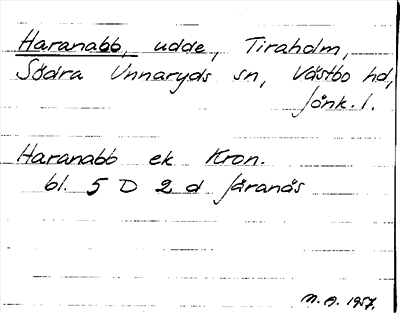 Haranabb, udde, Tiraholm,
Södra Unnaryds sn, Västbo hd,
Jönk. l.
Haranabb ek Kron.
bl. 5 D 2 d Järanäs
M. A. 1957.